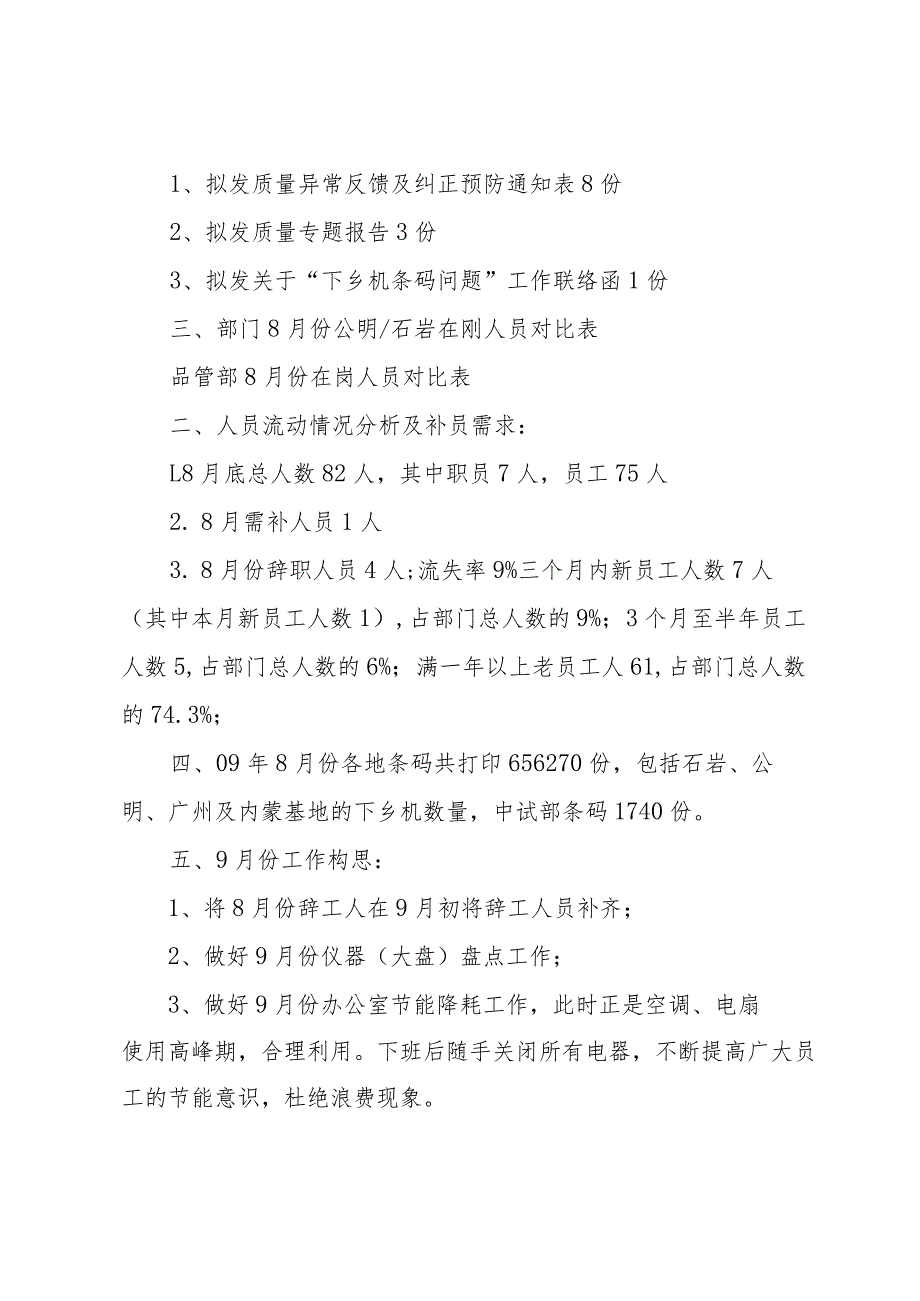 1、拟发质量异常反馈及纠正预防通知表8份
2、拟发质量专题报告3份
3、拟发关于“下乡机条码问题”工作联络函1份
三、部门8月份公明/石岩在刚人员对比表
品管部8月份在岗人员对比表
二、人员流动情况分析及补员需求：
L8月底总人数82人，其中职员7人，员工75人
2. 8月需补人员1人
3. 8月份辞职人员4人;流失率9%三个月内新员工人数7人
（其中本月新员工人数1）,占部门总人数的9%；3个月至半年员工
人数5,占部门总人数的6%；满一年以上老员工人61,占部门总人数
的74.3%；
四、09年8月份各地条码共打印656270份，包括石岩、公
明、广州及内蒙基地的下乡机数量，中试部条码1740份。
五、9月份工作构思：
1、将8月份辞工人在9月初将辞工人员补齐；
2、做好9月份仪器（大盘）盘点工作；
3、做好9月份办公室节能降耗工作，此时正是空调、电扇
使用高峰期，合理利用。下班后随手关闭所有电器，不断提高广大员
工的节能意识，杜绝浪费现象。